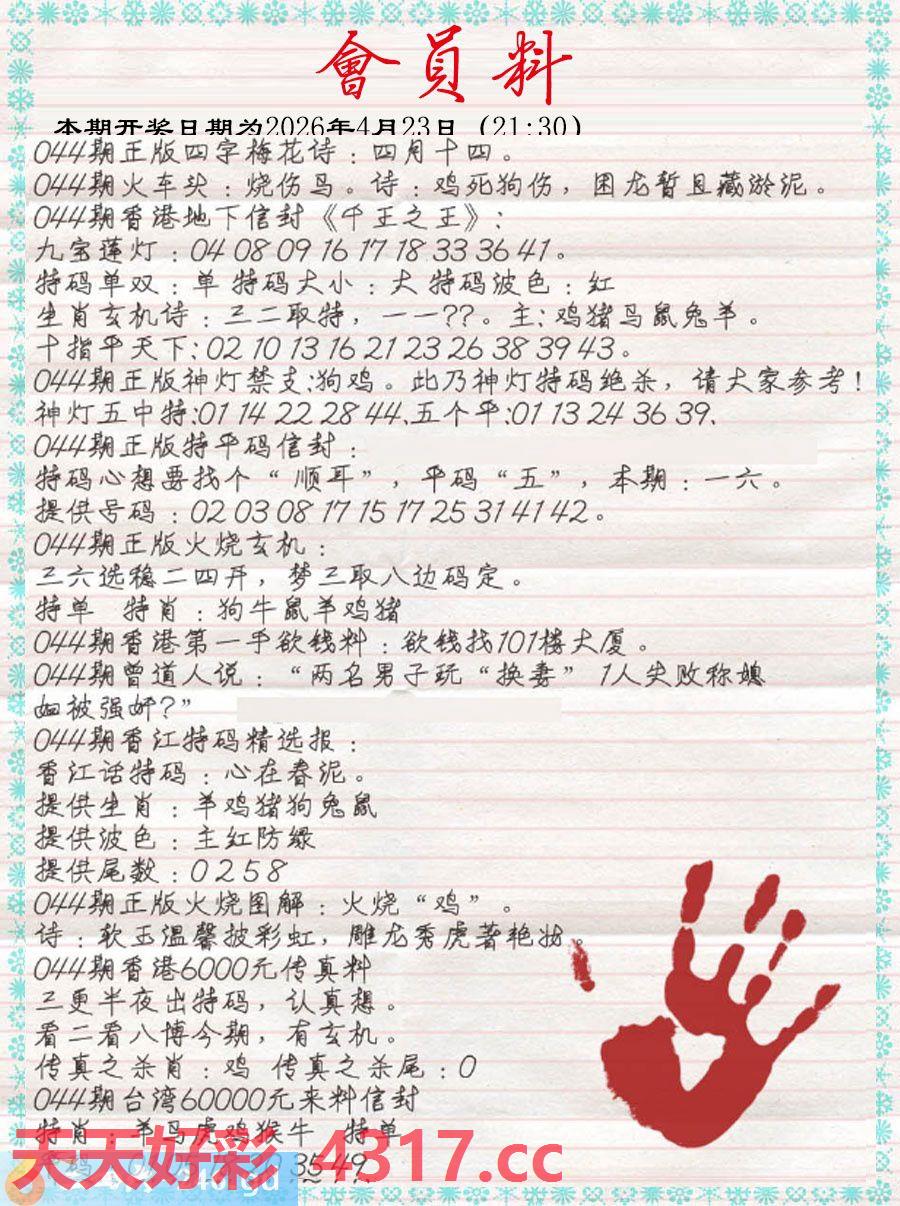 會員料
本期开奖日期为2026年4月23日（21:30）
044期正版四字梅花诗：四月十四。
044期火车头：烧伤鸟。诗：鸡死狗伤，困龙暂且藏淤泥。
044期香港地下信封《千王之王》：
九宝莲灯：04 08 09 16 17 18 33 36 41。
特码单双：单 特码大小：大 特码波色：红
生肖玄机诗：三二取特，一一??。主：鸡猪马鼠兔羊。
十指平天下：02 10 13 16 21 23 26 38 39 43。
044期正版神灯禁支：狗鸡。此乃神灯特码绝杀，请大家参考！
神灯五中特：01 14 22 28 44、五个平：01 13 24 36 39、
044期正版特平码信封：
特码心想要找个“顺耳”，平码“五”，本期：一六。
提供号码：02 03 08 17 15 17 25 31 41 42。
044期正版火烧玄机：
三六选稳二四开，梦三取八边码定。
特单 特肖：狗牛鼠羊鸡猪
044期香港第一手欲钱料：欲钱找101楼大厦。
044期曾道人说：“两名男子玩“换妻” 1人失败称媳
妇被强奸？”
044期香江特码精选报：
香江话特码：心在春泥。
提供生肖：羊鸡猪狗兔鼠
提供波色：主红防绿
提供尾数：0 2 5 8
044期正版火烧图解：火烧“鸡”。
诗：软玉温馨披彩虹，雕龙秀虎著艳妆。
044期香港6000元传真料
三更半夜出特码，认真想。
看二看八博今期，有玄机。
传真之杀肖：鸡 传真之杀尾：0
044期台湾60000元来料信封
特肖：羊马虎鸡猴牛 特单
35 49
天天好彩 4317.cc